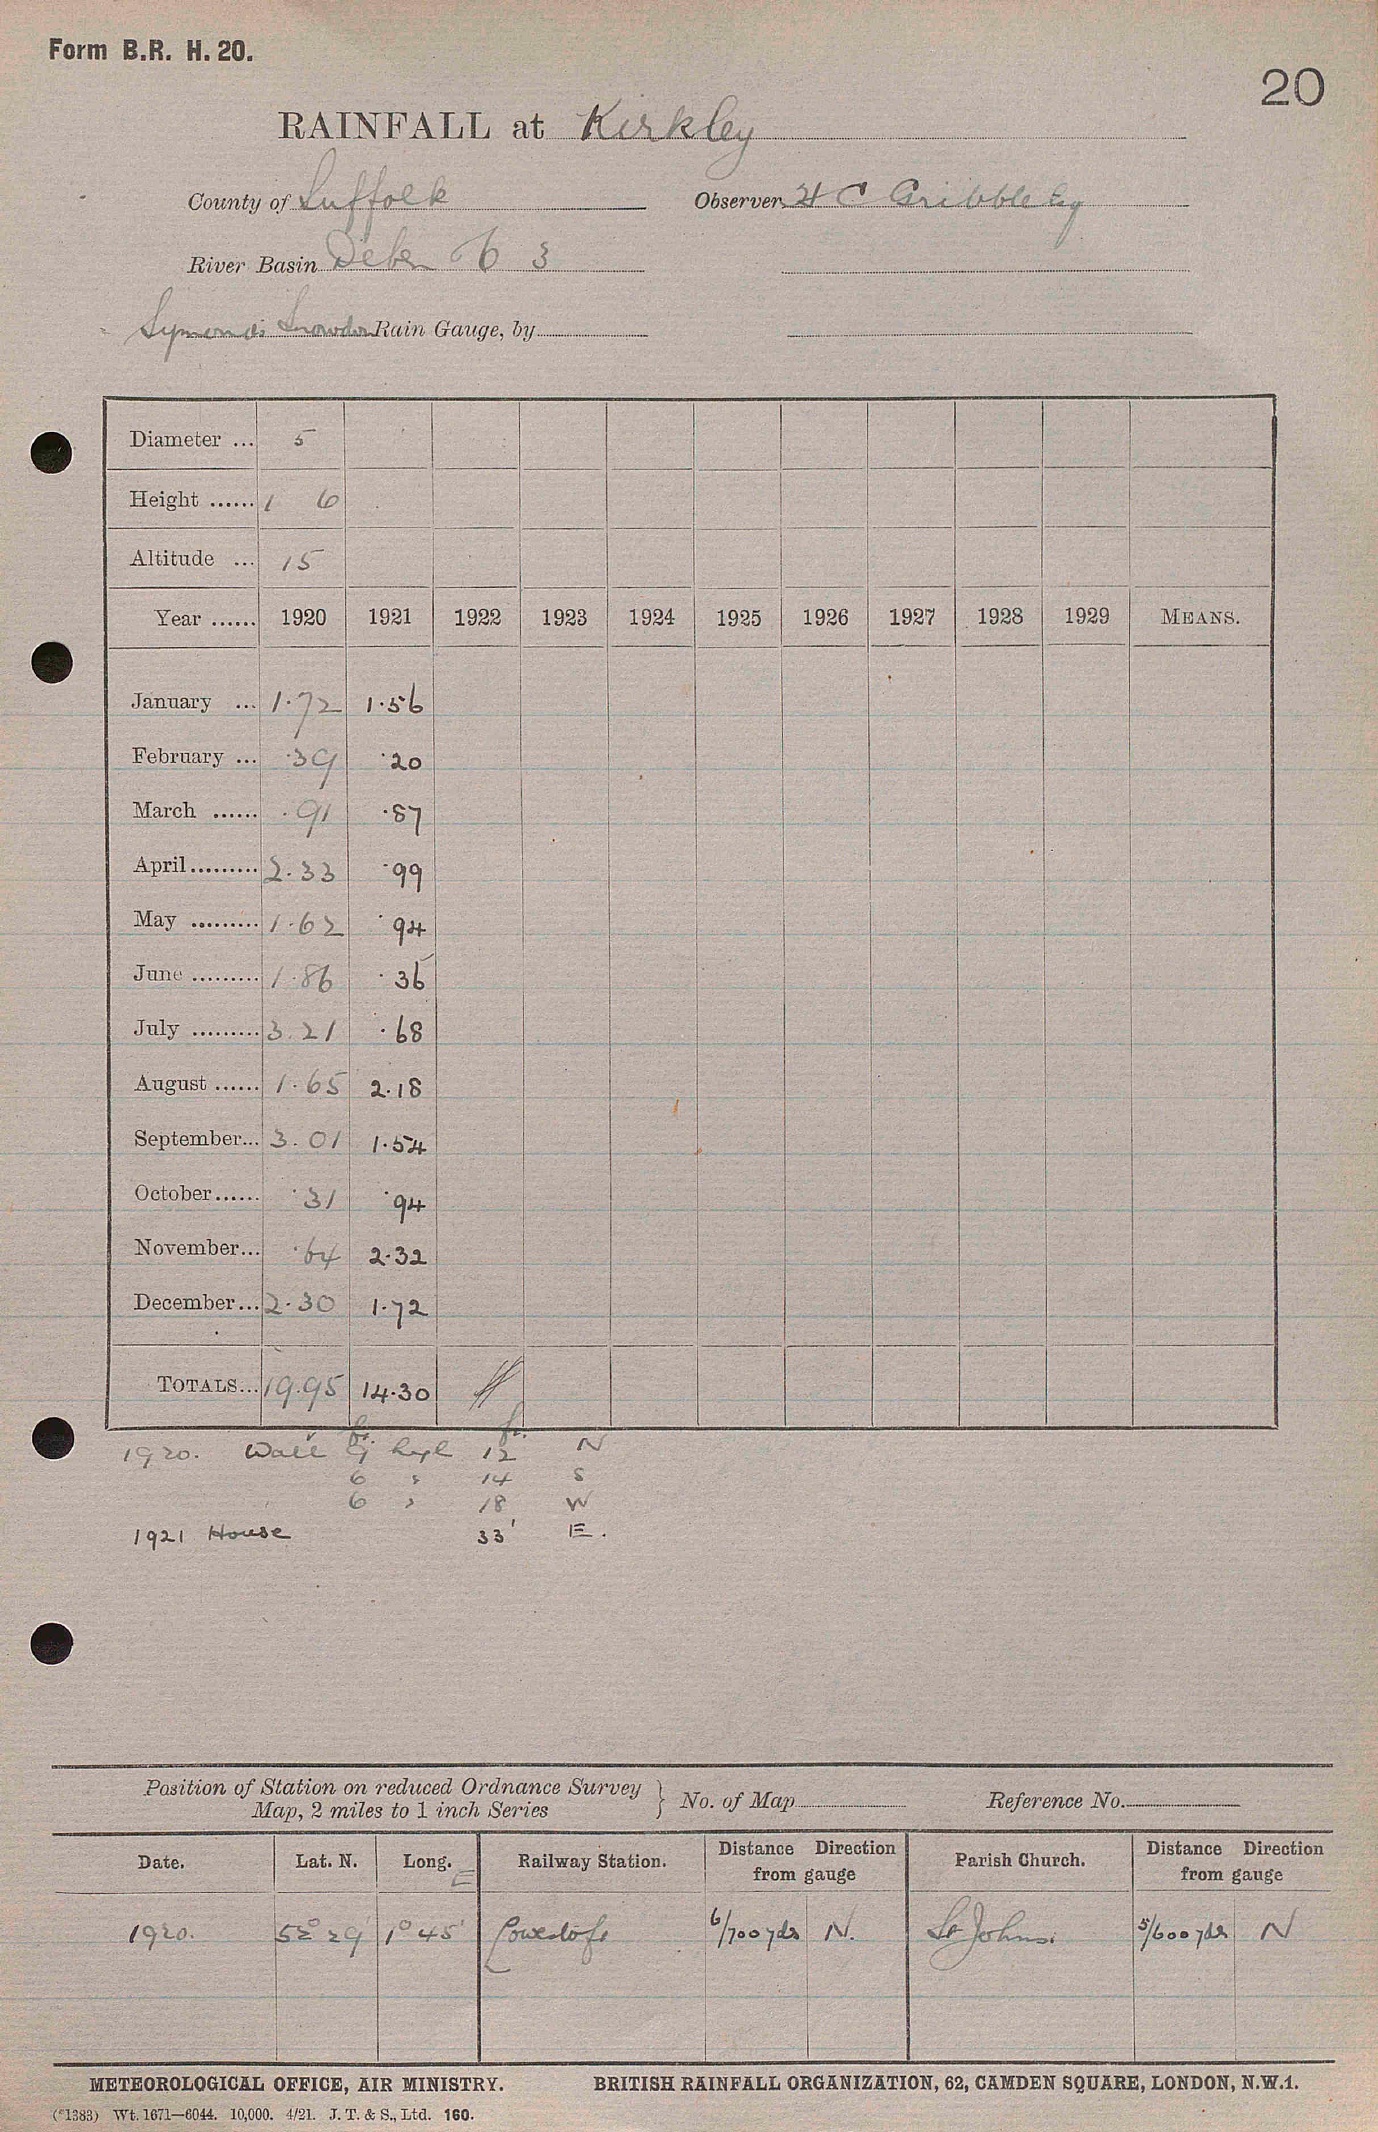 Form B.R. H. 20.
20
RAINFALL at Kirkley
County of Suffolk Observer H C Gribble Esq
River Basin Deben 6 3
Symons's Snowdon Rain Gauge, by
Diameter ... 5
Height ...... 1 6
Altitude ... 15
Year ...... 1920 1921 1922 1923 1924 1925 1926 1927 1928 1929 MEANS.
January ... 1.72 1.56
February ... .39 .20
March ...... .91 .87
April......... 2.33 .99
May ......... 1.62 .94
June ......... 1.86 .36
July ......... 3.21 .68
August ...... 1.65 2.18
September... 3.01 1.54
October...... .31 .94
November... .64 2.32
December... 2.30 1.72
TOTALS... 19.95 14.30
1920. Wall high 12 N
6 " 14 S
6 " 18 W
1921 House 33' E.
Position of Station on reduced Ordnance Survey Map, 2 miles to 1 inch Series } No. of Map Reference No.
Date. Lat. N. Long. E Railway Station. Distance Direction from gauge Parish Church. Distance Direction from gauge
1920. 52° 29' 1° 45' Lowestoft 6/700 yds N. St Johns. 5/600 yds N
METEOROLOGICAL OFFICE, AIR MINISTRY. BRITISH RAINFALL ORGANIZATION, 62, CAMDEN SQUARE, LONDON, N.W.1.
(*1383) Wt. 1671—6044. 10,000. 4/21. J. T. & S., Ltd. 160.